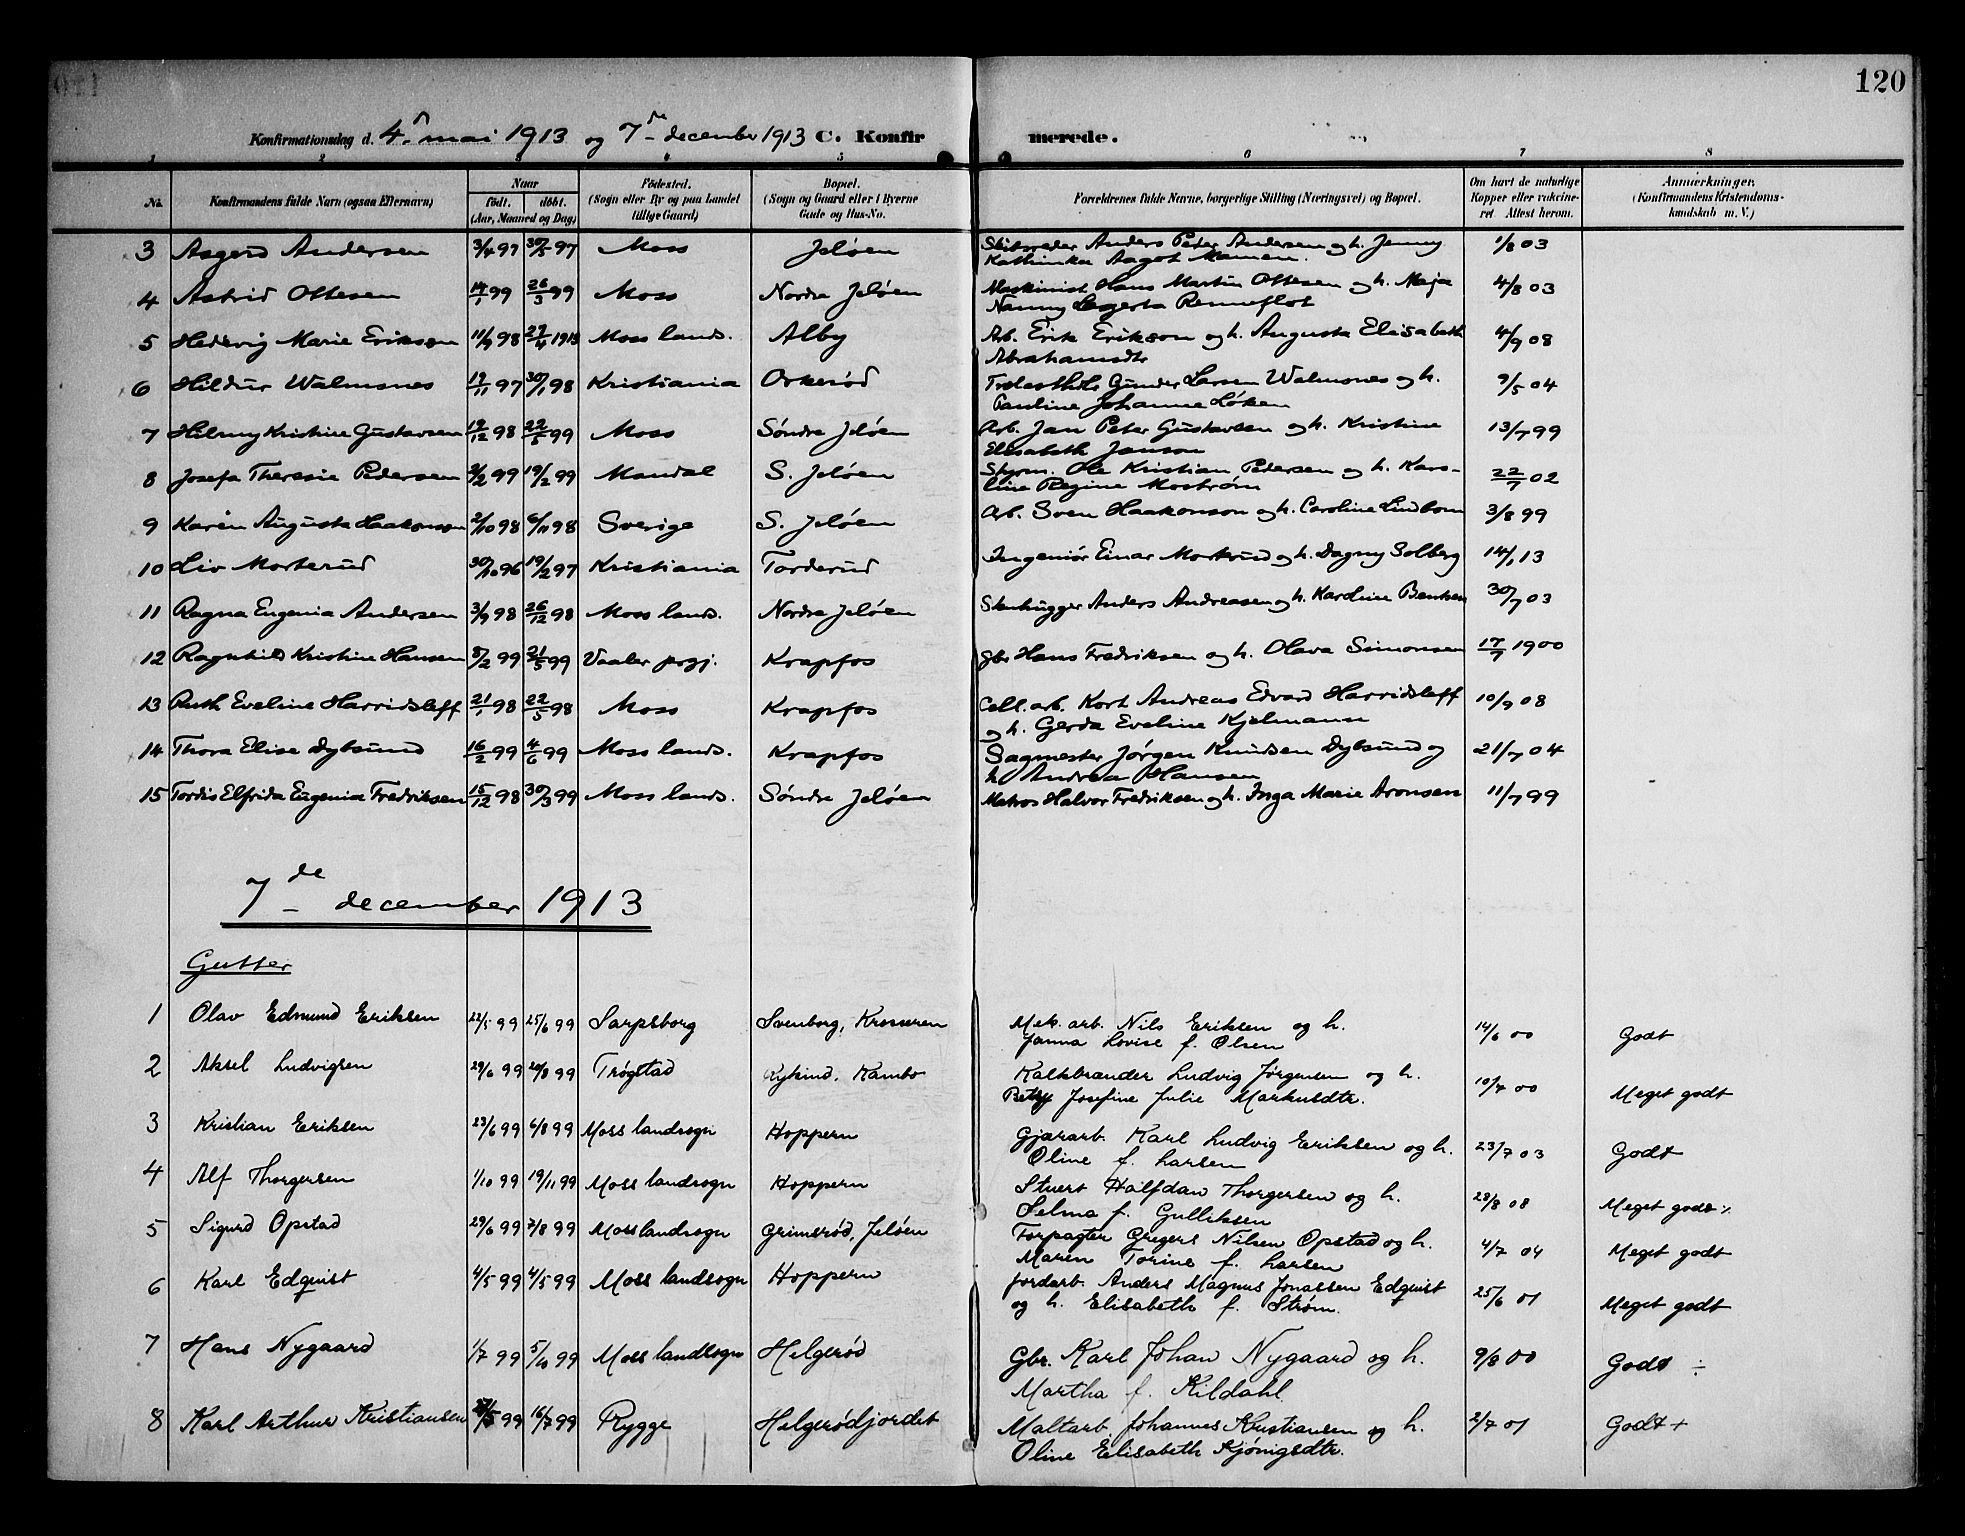 120
Konfirmationsdag d. 4. mai 1913 og 7de december 1913 C. Konfirmerede.
1 2 3 4 5 6 7 8
No. Konfirmandens fulde Navn (ogsaa Efternavn) Naar født. døbt. (Aar, Maaned og Dag) Fødested. (Sogn eller By og paa Landet tillige Gaard) Bopæl. (Sogn og Gaard eller i Byerne Gade og Hus-No. Forældrenes fulde Navne, borgerlige Stilling (Næringsvei) og Bopæl. Om havt de naturlige Kopper eller vakcineret. Attest herom. Anmærkninger. (Konfirmandens Kristendomskundskab m. V.)
3 Asgerd Andersen 3/4 97 30/5 97 Moss Jeløen Skibsreder Anders Peder Andersen og h. Jenny 1/8 03
Kathinka Aagot Mamen.
4 Astrid Ottesen 14/1 99 26/3 99 Moss Nordre Jeløen Maskinist Hans Martin Ottesen og h. Maja 4/8 03
Nanny Lagerta Renneflot
5 Hedevig Marie Erikson 11/9 98 27/4 1913 Moss lands. Alby Arb. Erik Erikson og h. Augusta Elisabeth 4/9 08
Abrahamsdtr
6 Hildur Walmsnes 19/11 97 30/1 98 Kristiania Orkerød Gunder Larsen Walmsnes og h. 9/5 04
Pauline Johanne Løken
7 Hilmy Kristine Gustavsen 19/12 98 22/5 99 Moss Søndre Jeløen Arb. Jan Peter Gustavsen og h. Kristine 13/7 99
Elisabeth Janson
8 Josefa Theresie Pedersen 2/2 99 19/2 99 Mandal S. Jeløen Styrm. Ole Kristian Pedersen og h. Karo- 22/7 02
line Regine Mostrøm
9 Karen Augusta Haakonson 2/10 98 6/11 98 Sverige S. Jeløen Arb. Sven Haakonson og h. Caroline Lindbom 3/8 99
10 Liv Morterud 30/10 96 19/2 97 Kristiania Torderud Ingeniør Einar Morterud og h. Dagny Solberg 14/1 13
11 Ragna Eugenia Andersen 3/9 98 26/12 98 Moss lands. Nordre Jeløen Stenhugger Anders Andreasen og h. Karoline Bentsen 30/7 03
12 Ragnhild Kristine Hansen 8/2 99 21/5 99 Vaaler prgj. Krapfos Gbr Hans Fredriksen og h. Olava Simonsen 17/7 1900
13 Ruth Eveline Harridsleff 21/1 98 22/5 98 Moss Krapfos Cell. arb. Kort Andreas Edvard Harridsleff 10/9 08
og h. Gerda Eveline Kjelmann
14 Thora Elise Dybsund 16/2 99 4/6 99 Moss lands. Krapfos Sagmester Jørgen Knudsen Dybsund og 21/7 04
h. Andrea Hansen
15 Tordis Elfrida Eugenia Fredriksen 15/12 98 30/3 99 Moss lands. Søndre Jeløen Matros Halvor Fredriksen og h. Inga Marie Aronsen 11/7 99
7de december 1913
Gutter
1 Olav Edmund Eriksen 22/5 99 25/6 99 Sarpsborg Svenborg, Krosseren Mek. arb. Nils Eriksen og h. 14/6 00 Godt
Janna Lovise f. Olsen
2 Aksel Ludvigsen 29/6 99 20/8 99 Trøgstad Rykind, Kambo Kalkbrænder Ludvig Jørgensen og h. 10/7 00 Meget godt
Betsy Josefine Julie Markusdtr.
3 Kristian Eriksen 23/6 99 6/8 99 Moss landsogn Hoppern Gjærarb. Karl Ludvig Eriksen og h. 23/7 03 Godt
Oline f. Larsen
4 Alf Thorgersen 1/10 99 19/11 99 Moss landsogn Hoppern Stuert Halfdan Thorgersen og h. 28/8 08 Meget godt ÷
Selma f. Gulliksen
5 Sigurd Opstad 29/6 99 7/8 99 Moss landsogn Grimsrød, Jeløen Forpagter Gregers Nilsen Opstad og h. 4/7 04 Meget godt
Maren Torine f. Larsen
6 Karl Edquist 4/5 99 4/5 99 Moss landsogn Hoppern Jordarb. Anders Magnus Jonassen Edquist 25/6 01 Meget godt
og h. Elisabeth f. Strøm.
7 Hans Nygaard 1/7 99 5/10 99 Moss landsogn Helgerød Gbr. Karl Johan Nygaard og h. 9/8 00 Godt ÷
Martha f. Kildahl
8 Karl Arthur Kristiansen 99 16/7 99 Rygge Helgerødjordet Maltarb. Johannes Kristiansen og h. 2/7 01 Godt +
Oline Elisabeth Kjønigsdtr.